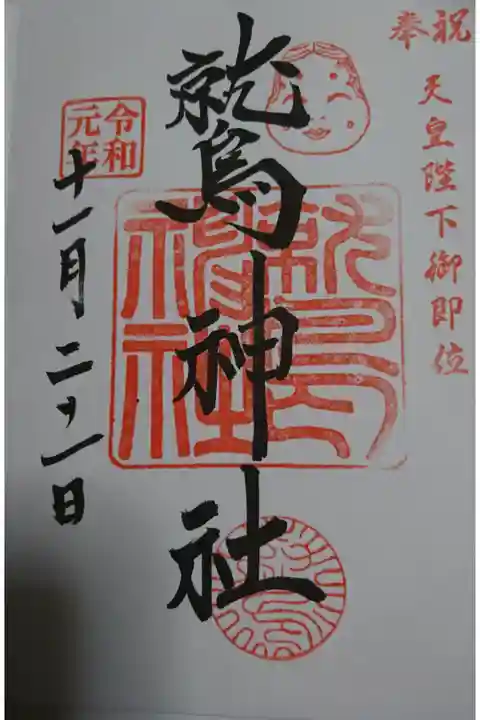 奉祝
天皇陛下御即位
鷲神社
令和元年
十一月二十一日